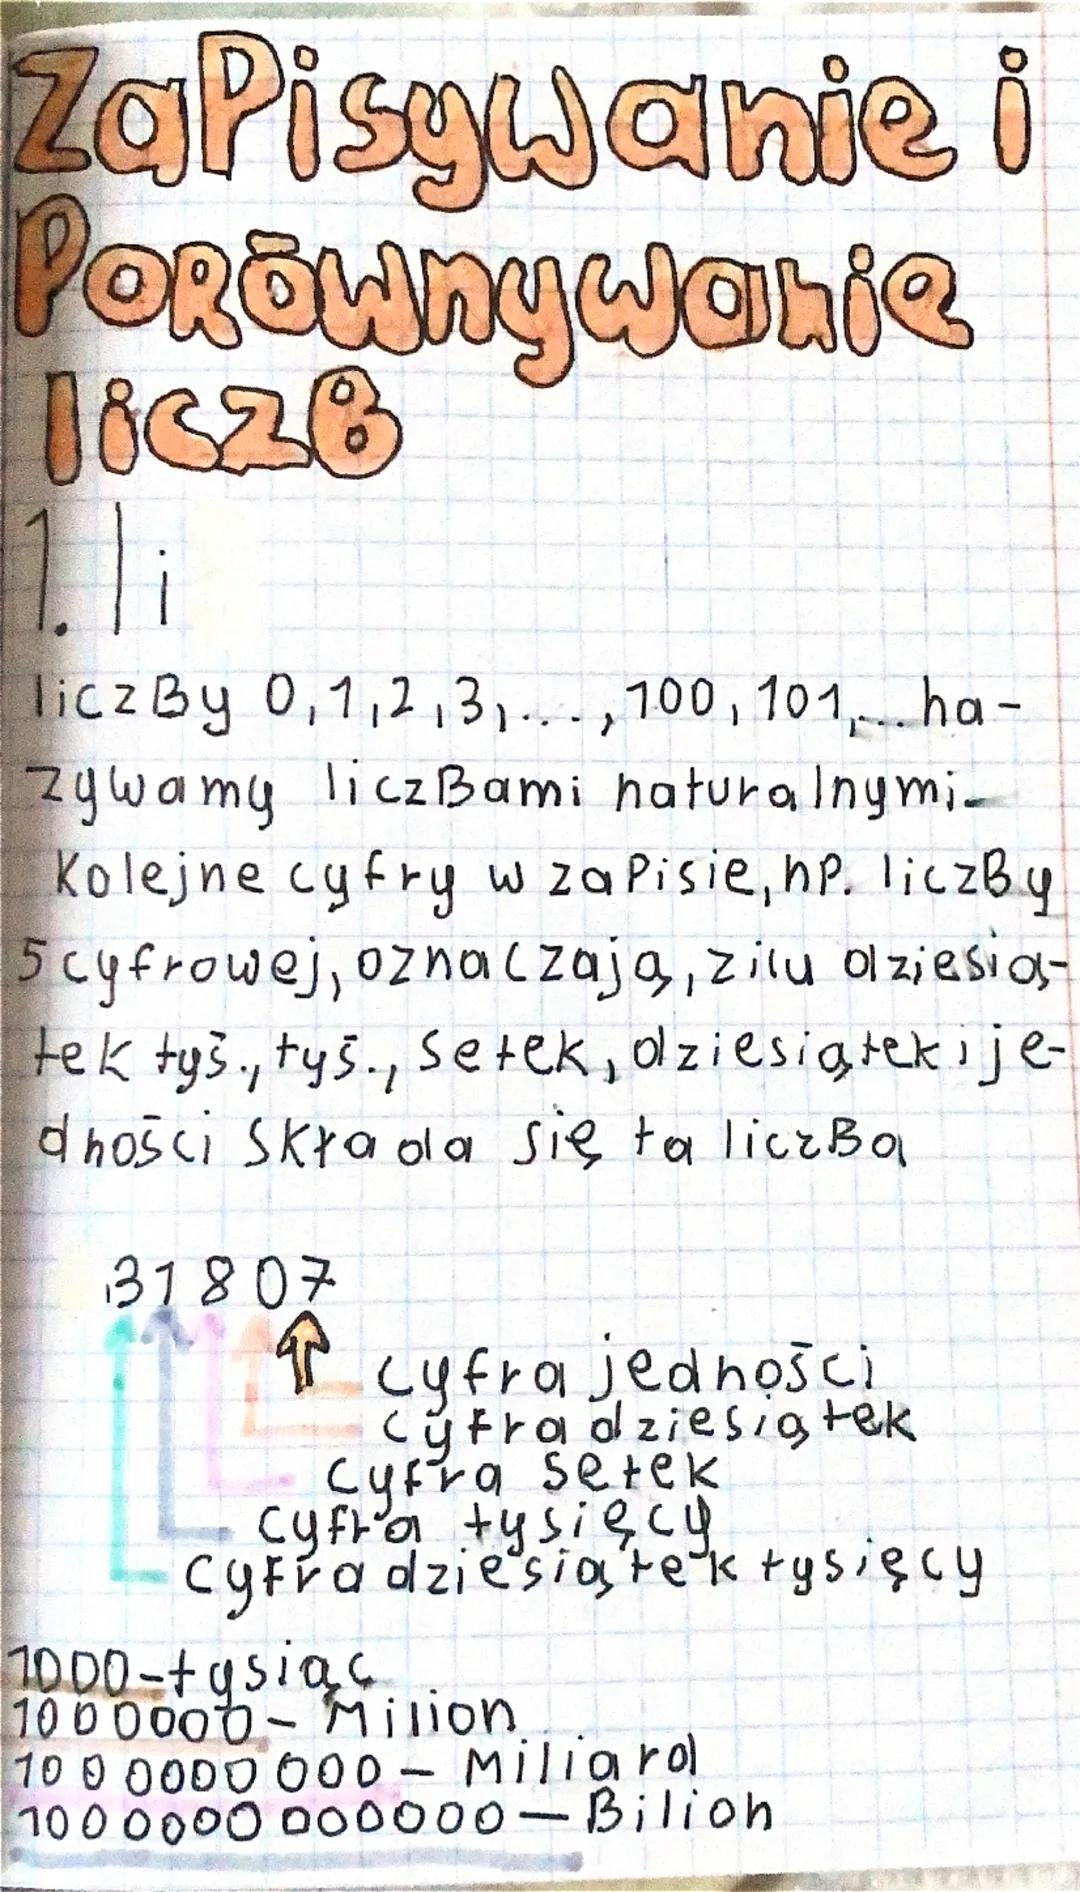 ZaPisywanie i
PORÓwnywanie
liczB
1. li
liczBy 0,1,2,3,...,100,101,... na-
zywamy liczBami naturalnymi.
Kolejne cyfry w zaPisie, np. liczBy
5 cyfrowej, oznaczają, z ilu dziesią-
tek tyś., tyś., setek, dziesiątek i je-
dności składa się ta liczBa
31807
cyfra jedności
cyfra dziesiątek
cyfra setek
cyfra tysięcy
cyfra dziesiątek tysięcy
1000-tysiąc
1000000- Milion
1000000000 - Miliard
1000000000000 - Bilion